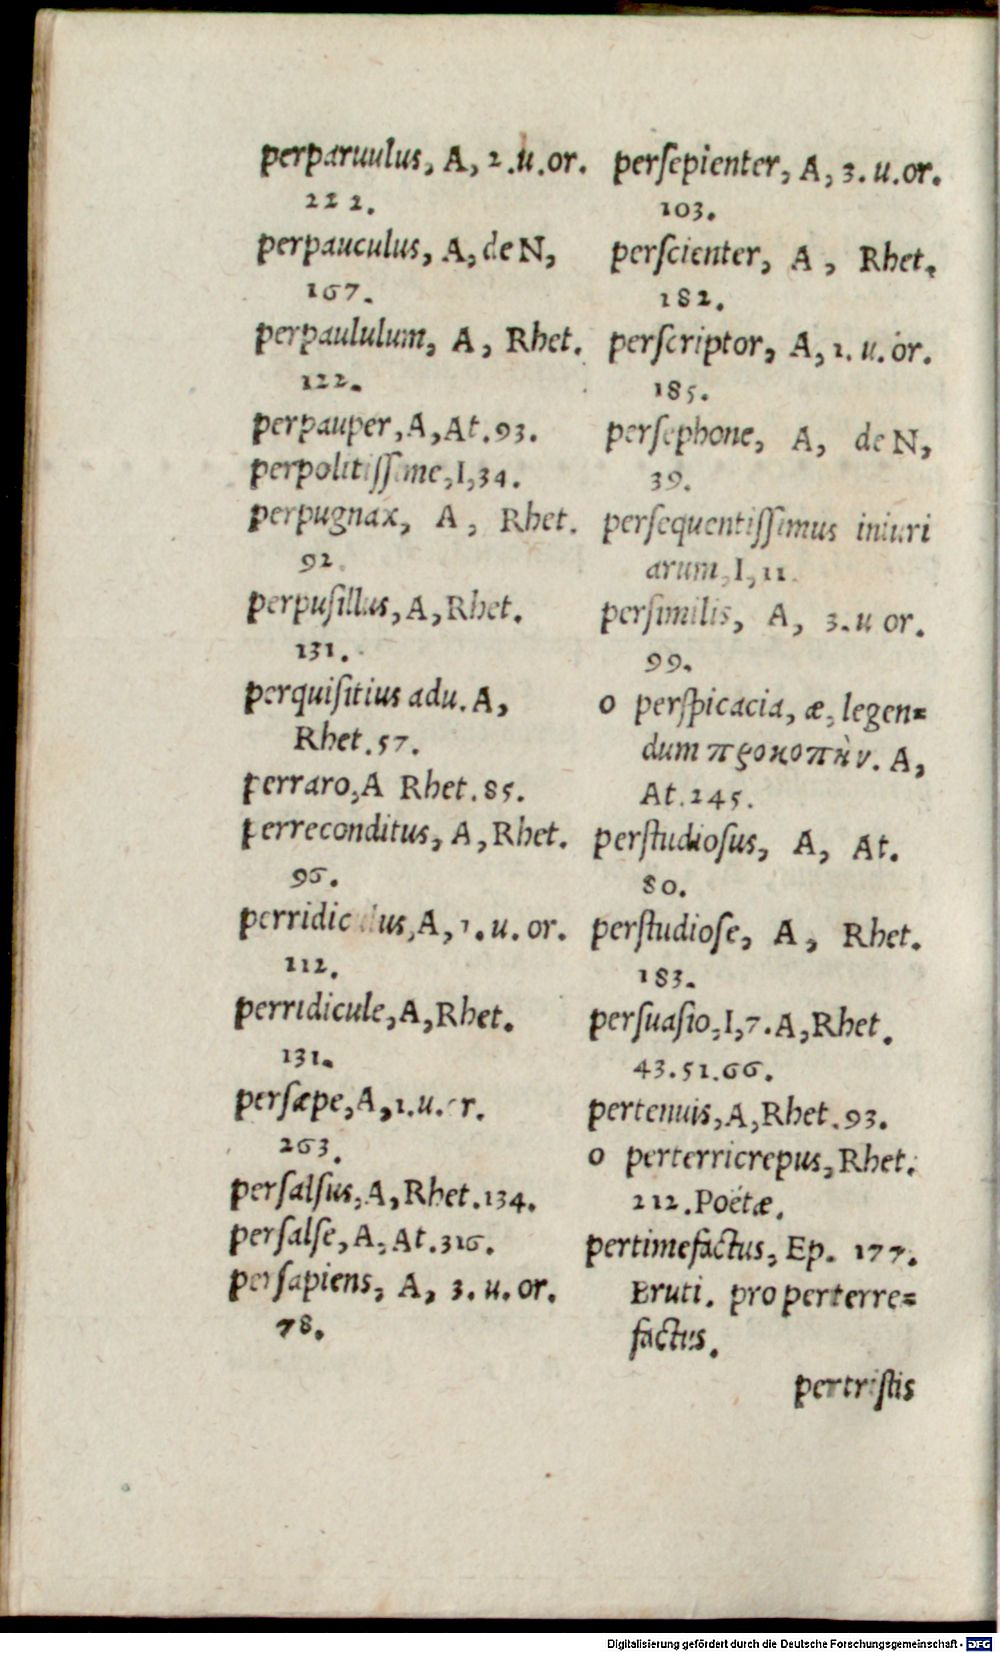 perparuulus, A, 2.u.or.
222.
perpauculus, A, de N,
167.
perpaululum, A, Rhet.
122.
perpauper, A, At.93.
perpolitissime, I, 34.
perpugnax, A, Rhet.
92.
perpusillus, A, Rhet.
131.
perquisitius adu. A,
Rhet.57.
perraro, A Rhet.85.
perreconditus, A, Rhet.
96.
perridiculus, A, 1.u.or.
112.
perridicule, A, Rhet.
131.
persæpe, A, 1.u.or.
263.
persalsus, A, Rhet.134.
persalse, A, At.316.
persapiens, A, 3.u.or.
78.
persepienter, A, 3.u.or.
103.
perscienter, A, Rhet.
182.
perscriptor, A, 1.u.or.
185.
persephone, A, de N,
39.
persequentissimus iniuri
arum, I, 11.
persimilis, A, 3.u or.
99.
o perspicacia, æ, legen=
dum προκοπὴν. A,
At.245.
perstudiosus, A, At.
80.
perstudiose, A, Rhet.
183.
persuasio, I, 7. A, Rhet.
43.51.66.
pertenuis, A, Rhet.93.
o perterricrepus, Rhet.
212. Poëtæ.
pertimefactus, Ep. 177.
Bruti. pro perterre=
factus.
pertristis
Digitalisierung gefördert durch die Deutsche Forschungsgemeinschaft - DFG